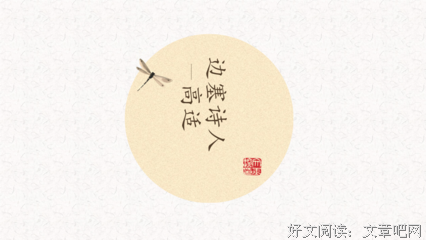 边塞诗人
—高适
好文阅读：文章吧网